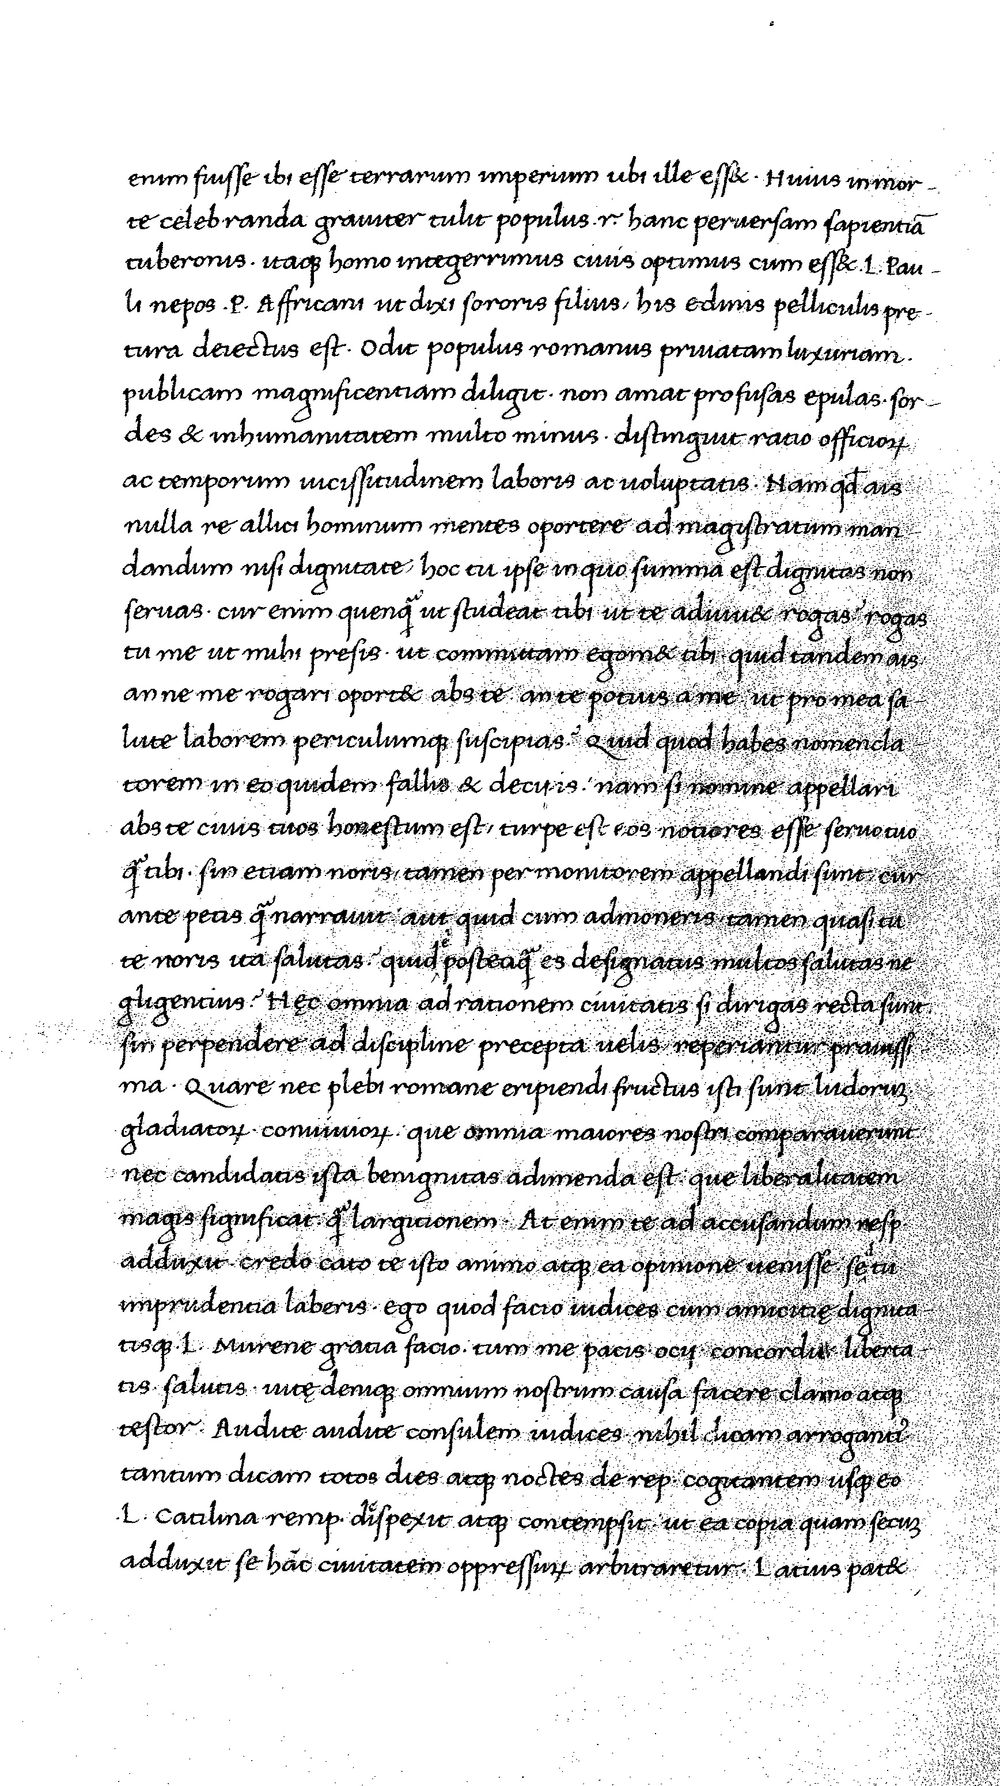 enim fuisse ibi esse terrarum imperium ubi ille ess&. Huius in mor-
te celebranda grauiter tulit populus .r. hanc peruersam sapientiã
tuberonis. itaqꝫ homo integerrimus ciuis optimus cum ess& .L. Pau-
li nepos .P. Affricani ut dixi sororis filius, his edinis pelliculis pre-
tura deiectus est. Odit populus romanus priuatam luxuriam.
publicam magnificentiam diligit. non amat profusas epulas. sor-
des & inhumanitatem multo minus. distinguit ratio officioꝝ
ac temporum uicissitudinem laboris ac uoluptatis. Nam qđ ais
nulla re allici hominum mentes oportere ad magistratum man-
dandum nisi dignitate, hoc tu ipse in quo summa est dignitas non
seruas. cur enim quenqᷓ ut studeat tibi ut te adiuu& rogas? rogas
tu me ut mihi presis. ut committam egom& tibi. quid tandem ais,
anne me rogari oport& abs te. an te potius a me, ut pro mea sa-
lute laborem periculumqꝫ suscipias? Quid quod habes nomencla-
torem in eo quidem fallis & decipis. nam si nomine appellari
abs te ciuis tuos honestum est, turpe est eos notiores esse seruo tuo
qᷓ tibi. sin etiam noris, tamen per monitorem appellandi sunt. cur
ante petis qᷓ narrauit. aut quid cum admoneris. tamen quasi tu
te noris ita salutas? quid posteaqᷓ es designatus multos salutas ne
gligentius? Hęc omnia ad rationem ciuitatis si dirigas recta sunt.
sin perpendere ad discipline precepta uelis. reperiantur prauissi-
ma. Quare nec plebi romane eripiendi fructus isti sunt ludoruꝫ
gladiatoꝝ. conuiuioꝝ. que omnia maiores nostri comparauerunt
nec candidatis ista benignitas adimenda est. que liberalitatem
magis significat. qᷓ largitionem. At enim te ad accusandum resp.
adduxit. credo cato te isto animo atqꝫ ea opinione uenisse. sed tu
imprudentia laberis. ego quod facio iudices cum amicitię dignita-
tisqꝫ .L. Murene gratia facio. tum me pacis. ocij. concordie liberta-
tis. salutis. uitę deniqꝫ omnium nostrum causa facere clamo atqꝫ
testor. Audite audite consulem iudices. nihil dicam arrogantiꝰ
tantum dicam totos dies atqꝫ noctes de rep. cogitantem usqꝫ eo
.L. Catilina remp. dispexit atqꝫ contempsit. ut ea copia quam secuꝫ
adduxit se hãc ciuitatem oppressuꝝ arbitraretur. Latius pat&